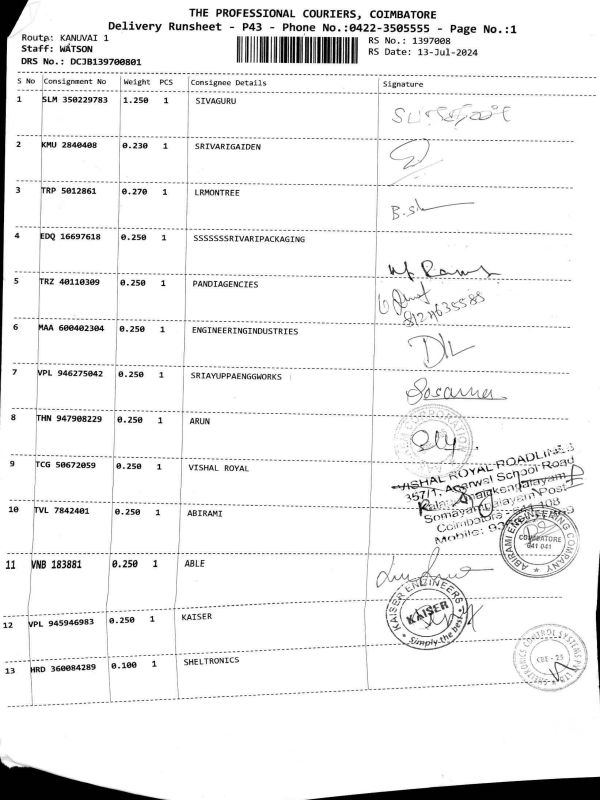 THE PROFESSIONAL COURIERS, COIMBATORE
Delivery Runsheet - P43 - Phone No.:0422-3505555 - Page No.:1
Route: KANUVAI 1
RS No.: 1397008
Staff: WATSON
RS Date: 13-Jul-2024
DRS No.: DCJB139700801
S No Consignment No Weight PCS Consignee Details Signature
1 SLM 350229783 1.250 1 SIVAGURU
2 KMU 2840408 0.230 1 SRIVARIGAIDEN
3 TRP 5012861 0.270 1 LRMONTREE
4 EDQ 16697618 0.250 1 SSSSSSSRIVARIPACKAGING
5 TRZ 40110309 0.250 1 PANDIAGENCIES
6 MAA 600402304 0.250 1 ENGINEERINGINDUSTRIES
7 VPL 946275042 0.250 1 SRIAYUPPAENGGWORKS
8 THN 947908229 0.250 1 ARUN
9 TCG 50672059 0.250 1 VISHAL ROYAL
VISHAL ROYAL ROADLINES
357/1, Agarwal School Road
Somayampalayam Post
Coimbatore - 641 108
Mobile:
10 TVL 7842401 0.250 1 ABIRAMI
ABIRAMI ENGINEERING COMPANY
COIMBATORE
641 041
11 VNB 183881 0.250 1 ABLE
12 VPL 945946983 0.250 1 KAISER
KAISER ENGINEERS
KAISER
Simply the best
13 HRD 360084289 0.100 1 SHELTRONICS
SHELTRONICS CONTROL SYSTEMS PVT LTD
CBE - 25